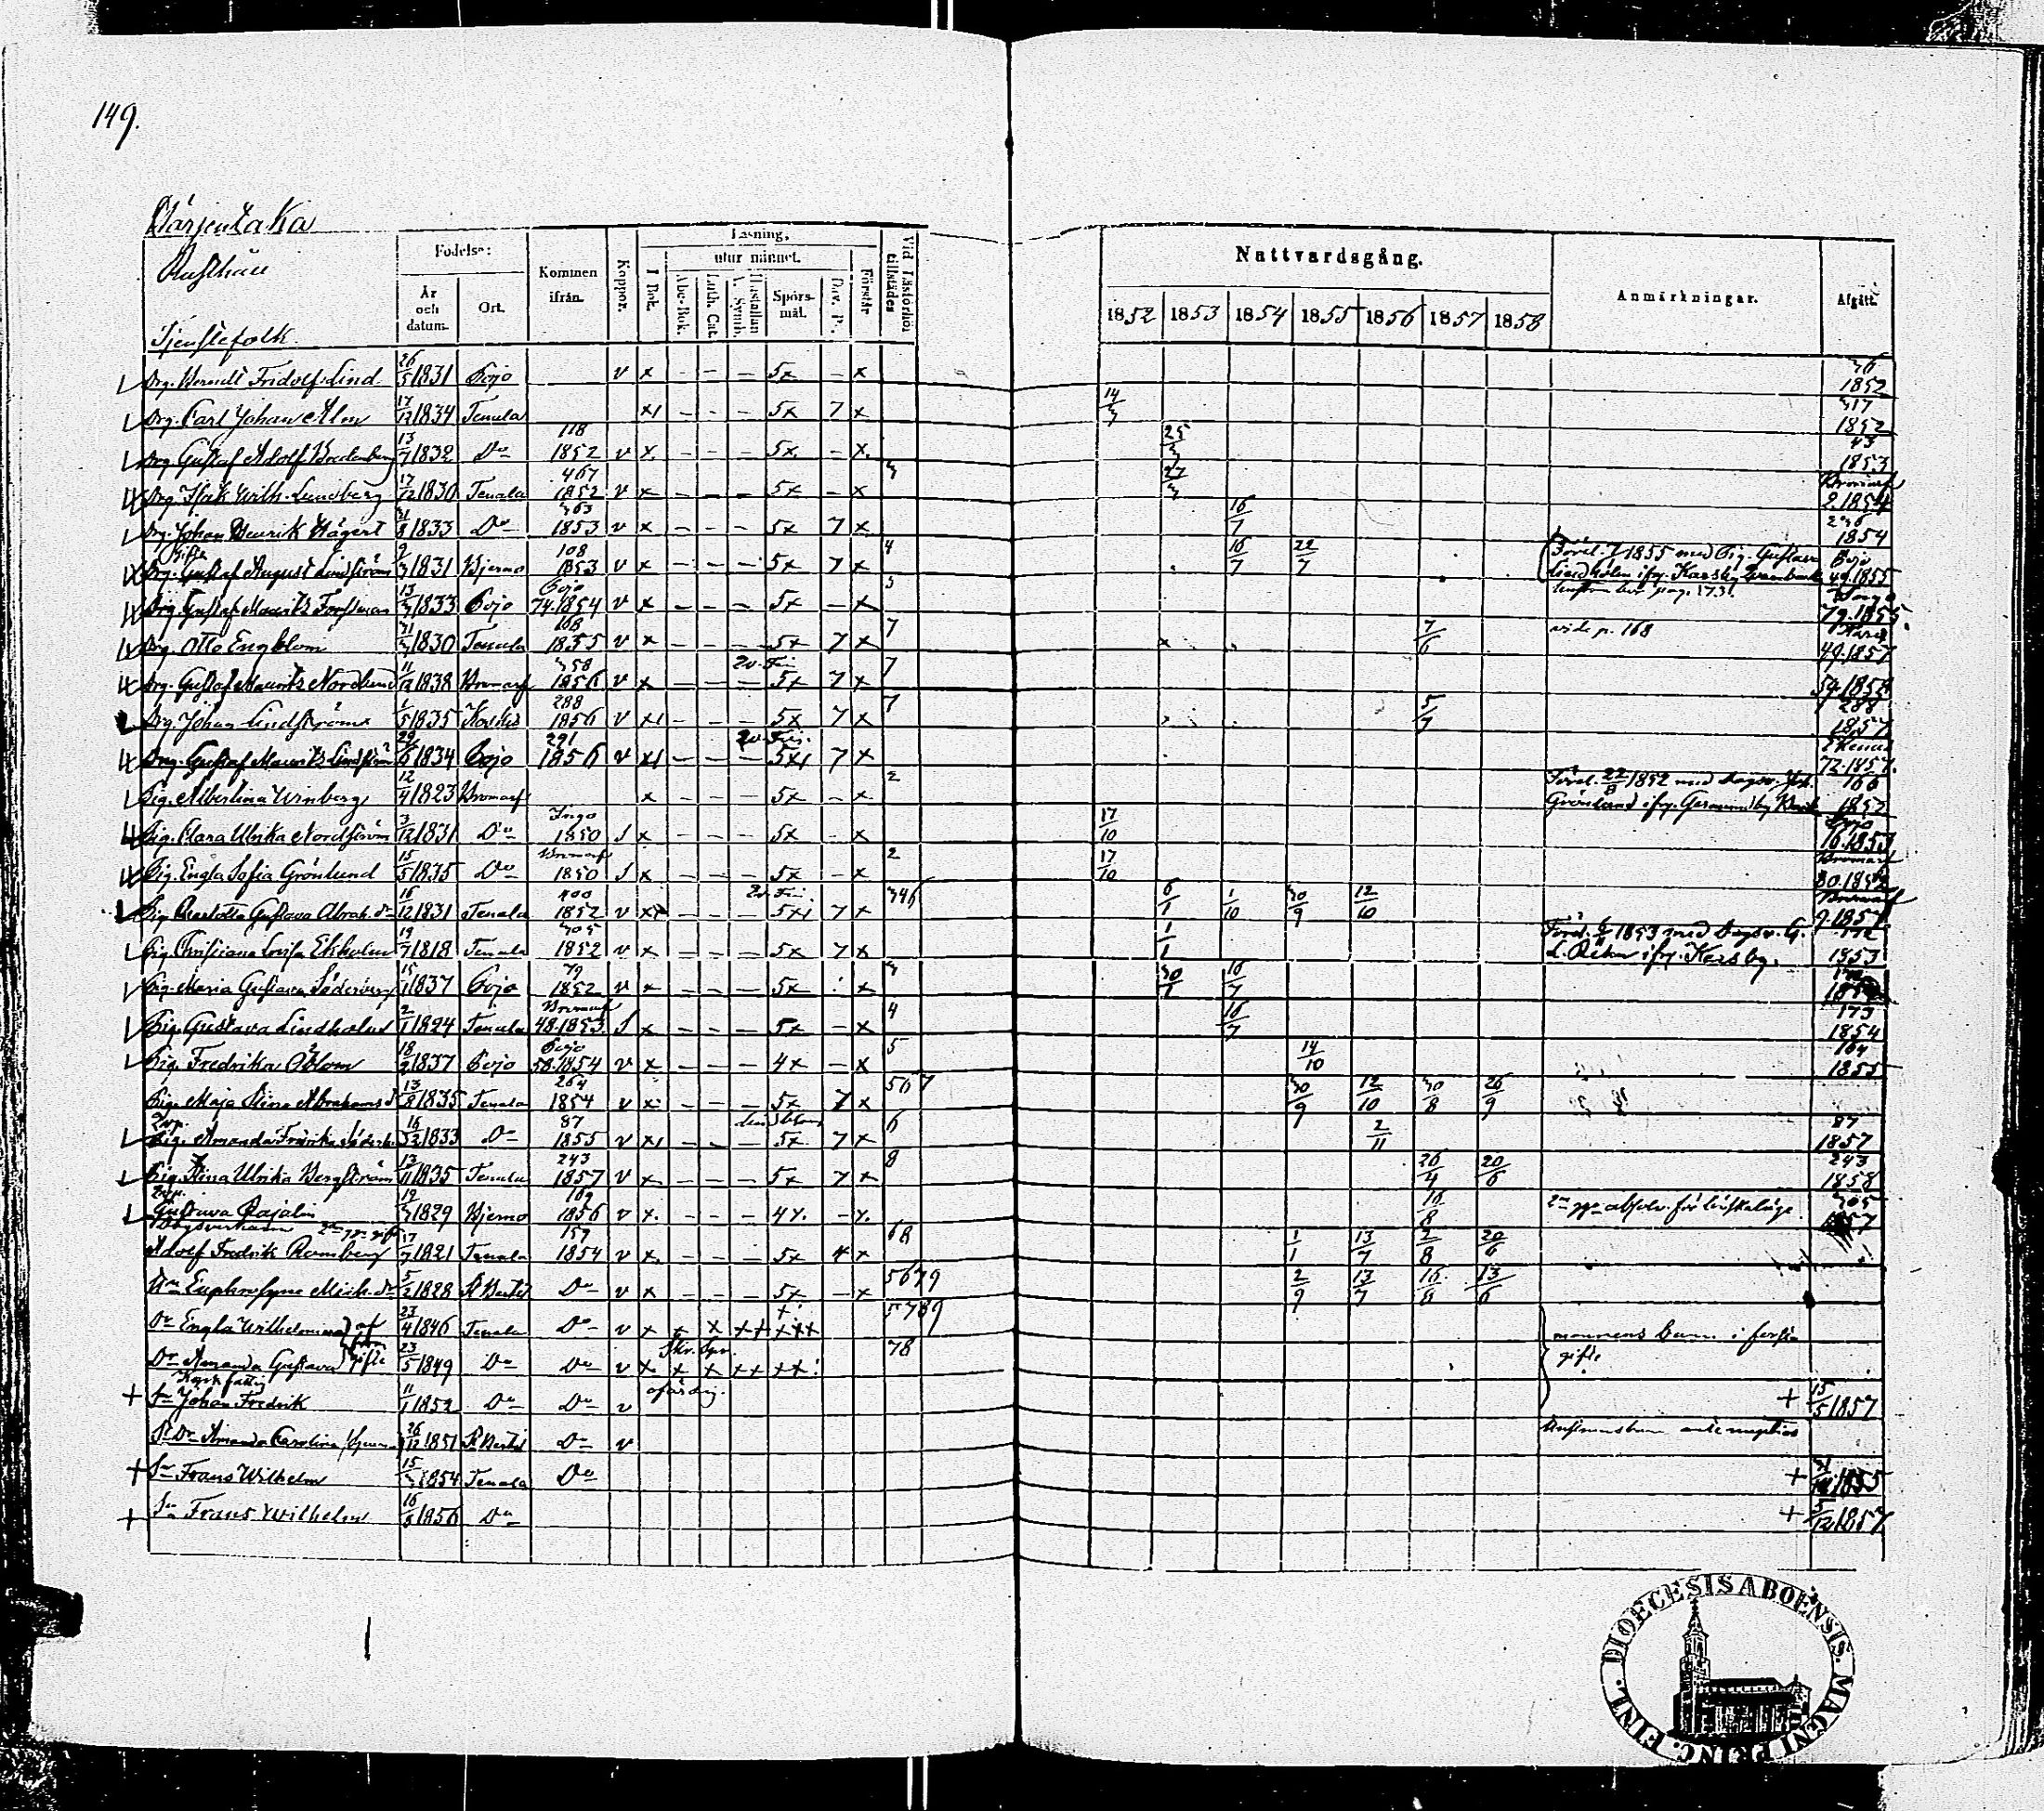 149.
Rusthåll
Tjenstefolk.
Födelse: Kommen ifrån. Koppor. Läsning, Vid Läsförhör tillstädes Nattvardsgång. Anmärkningar. Afgått.
År och datum. Ort. I Bok. utur minnet. Förstår
Abc-Bok. Luth. Cat. Hustaflan A. Symb. Spörs-mål. Dav. Ps. 1852 1853 1854 1855 1856 1857 1858
Drg. Berndt Fridolf Lind. 26/5 1831 Pojo v x - - - 5x - x 36 1852
Drg. Carl Johan Alm 17/12 1834 Tenala x1 - - - 5x 7 x 14/3 317 1852
Drg. Gustaf Adolf Bredenberg 13/7 1832 Do 118 1852 v x - - - 5x - x 25/3 43 1853
Drg. Isak Wilh. Lundberg 17/12 1830 Tenala 467 1852 v x - - - 5x - x 3 27/3 Bromarf 2.1854
Drg. Johan Henrik Hägert 21/8 1833 Do 363 1853 v x - - - 5x 7 x 16/7 236 1854
gifte
Drg. Gustaf August Lindström 9/3 1831 Bjerno 108 1853 v x - - - 5x 7 x 4 16/7 22/7 Förel. 1855 med Pig. Gustava Lindholm ifr. Karsby Pojo 49.1855
Drg. Gustaf Maurits Forsman 13/3 1833 Pojo Pojo 74.1854 v x - - - 5x - x 5 79.1855.
Drg. Otto Engblom 1830 Tenala 168 1855 v x - - - 5x 7 x 7 7/6 vide p. 168 Karis 49.1857
Drg. Gustaf Maurits Nordlund 11/12 1838 Bromarf 358 1856 v x - - - 5x 7 x 7 59.1858
Drg. Johan Lindström 1/5 1835 Karis 288 1856 v x1 - - - 5x 7 x 7 5/7 288 1857
Drg. Gustaf Maurits Lindström 29/6 1834 Pojo 291 1856 v x1 - - - 5x1 7 x Ekenäs 72.1857.
Pig. Albertina Winberg 12/4 1823 Bromarf x - - - 5x - x 2 Förel. 22/8 1852 med dagsv. Joh. Grönlund ifr. Germundby 166 1852
Pig. Clara Ulrika Nordström 3/12 1831 Do Ingo 1850 S x - - - 5x - x 17/10 Pojo 16.1853
Pig. Engla Sofia Grönlund 15/5 1835 Do Bromarf 1850 S x - - - 5x - x 2 17/10 Bromarf 80.1852
Pig. Charlotta Gustava Abrah. dr 16/12 1831 Tenala 400 1852 v xx - - - 5x1 7 x 346 6/1 1/10 30/9 12/10 Bromarf 9.1857
Pig. Christiana Lovisa Ekholm 19/7 1818 Tenala 305 1852 v x - - - 5x 7 x 1/1 Förel. 1853 med dagsv. G. ifr. Karsby. 172 1853
Pig. Maria Gustava Söderberg 15/1 1837 Pojo 79 1852 v x - - - 5x x 3 30/1 16/7
Pig. Gustava Lindholm 2/1 1824 Tenala Bromarf 48.1853. S x - - - 5x - x 4 16/7 173 1854
Pig. Fredrika Öblom 18/2 1837 Pojo Pojo 58.1854 v x - - - 4x - x 5 14/10 164 1855
Pig. Maja Stina Abrahams dr 13/8 1835 Tenala 264 1854 v x - - - 5x 7 x 567 30/9 12/10 30/8 26/9
Pig. Amanda Fredrika Söderh. 16/12 1833 Do 87 1855 v x1 - - - 5x 7 x 6 2/11 87 1857
Pig. Stina Ulrika Bergström 13/11 1835 Tenala 243 1857 v x - - - 5x 7 x 8 26/4 20/6 243 1858
Gustava Rajalin 19/3 1829 Bjerno 169 1856 v x. - - - 4x. - x. 16/8 2:n ggn absolv. för lönskaläge. 305 1857
Dagsverkarn 2:n ggn gift
Adolf Fredrik Ramberg 17/7 1821 Tenala 159 1854 v x. - - - 5x 4 x 68 1/1 13/7 2/8 20/6
Hu Euphrosyne Mich. dr 5/2 1828 St Bertil Do v x - - - 5x - x 5679 2/9 13/7 16/8 13/6
Dr Engla Wilhelmina 23/4 1846 Tenala Do v x x x xx xxx 5789 mannens barn i förra gifte
Dr Amanda Gustava 23/5 1849 Do Do v x x x xx xx 78
Sn Johan Fredrik 11/1 1852 Do Do v ofärdig. + 15/5 1857
Dr Amanda Carolina 26/12 1851 St Bertil Do v Hustruns barn ante nuptias
Sn Frans Wilhelm 15/3 1854 Tenala Do + 1855
Sn Frans Wilhelm 16/6 1856 Do + 5/12 1857
DIOECESIS ABOENSIS. MAGNI PRINC. FINL.